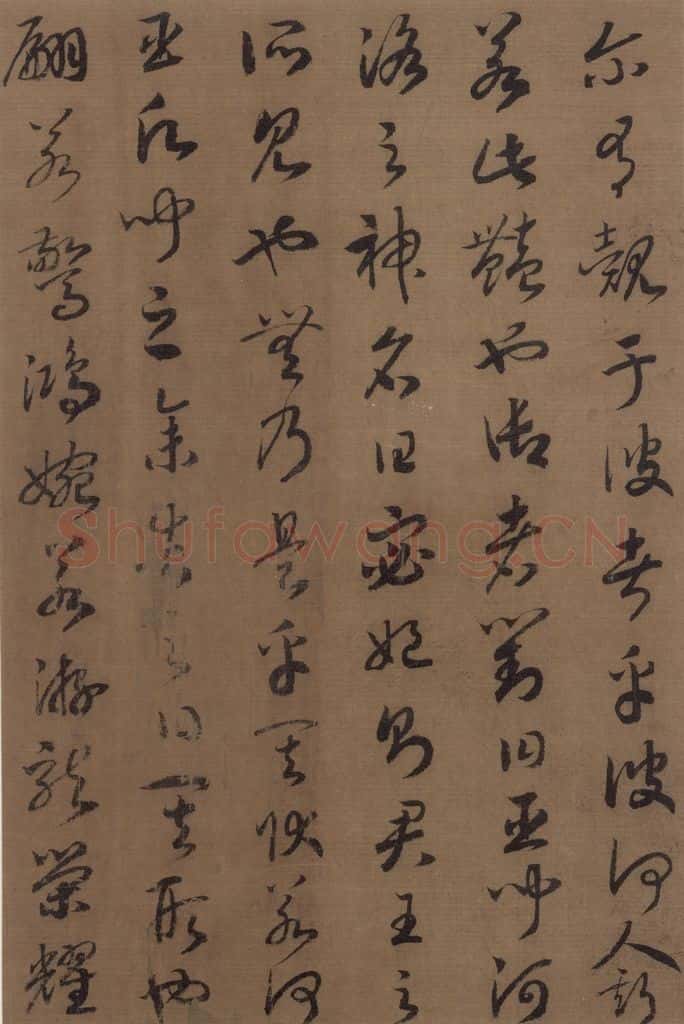 尔有觌于彼者乎彼何人斯
若此艳也御者对曰臣闻河
洛之神名曰宓妃则君王之
所见也无乃是乎其状若何
臣愿闻之余告之曰其形也
翩若惊鸿婉若游龙荣耀
Shufawang.CN